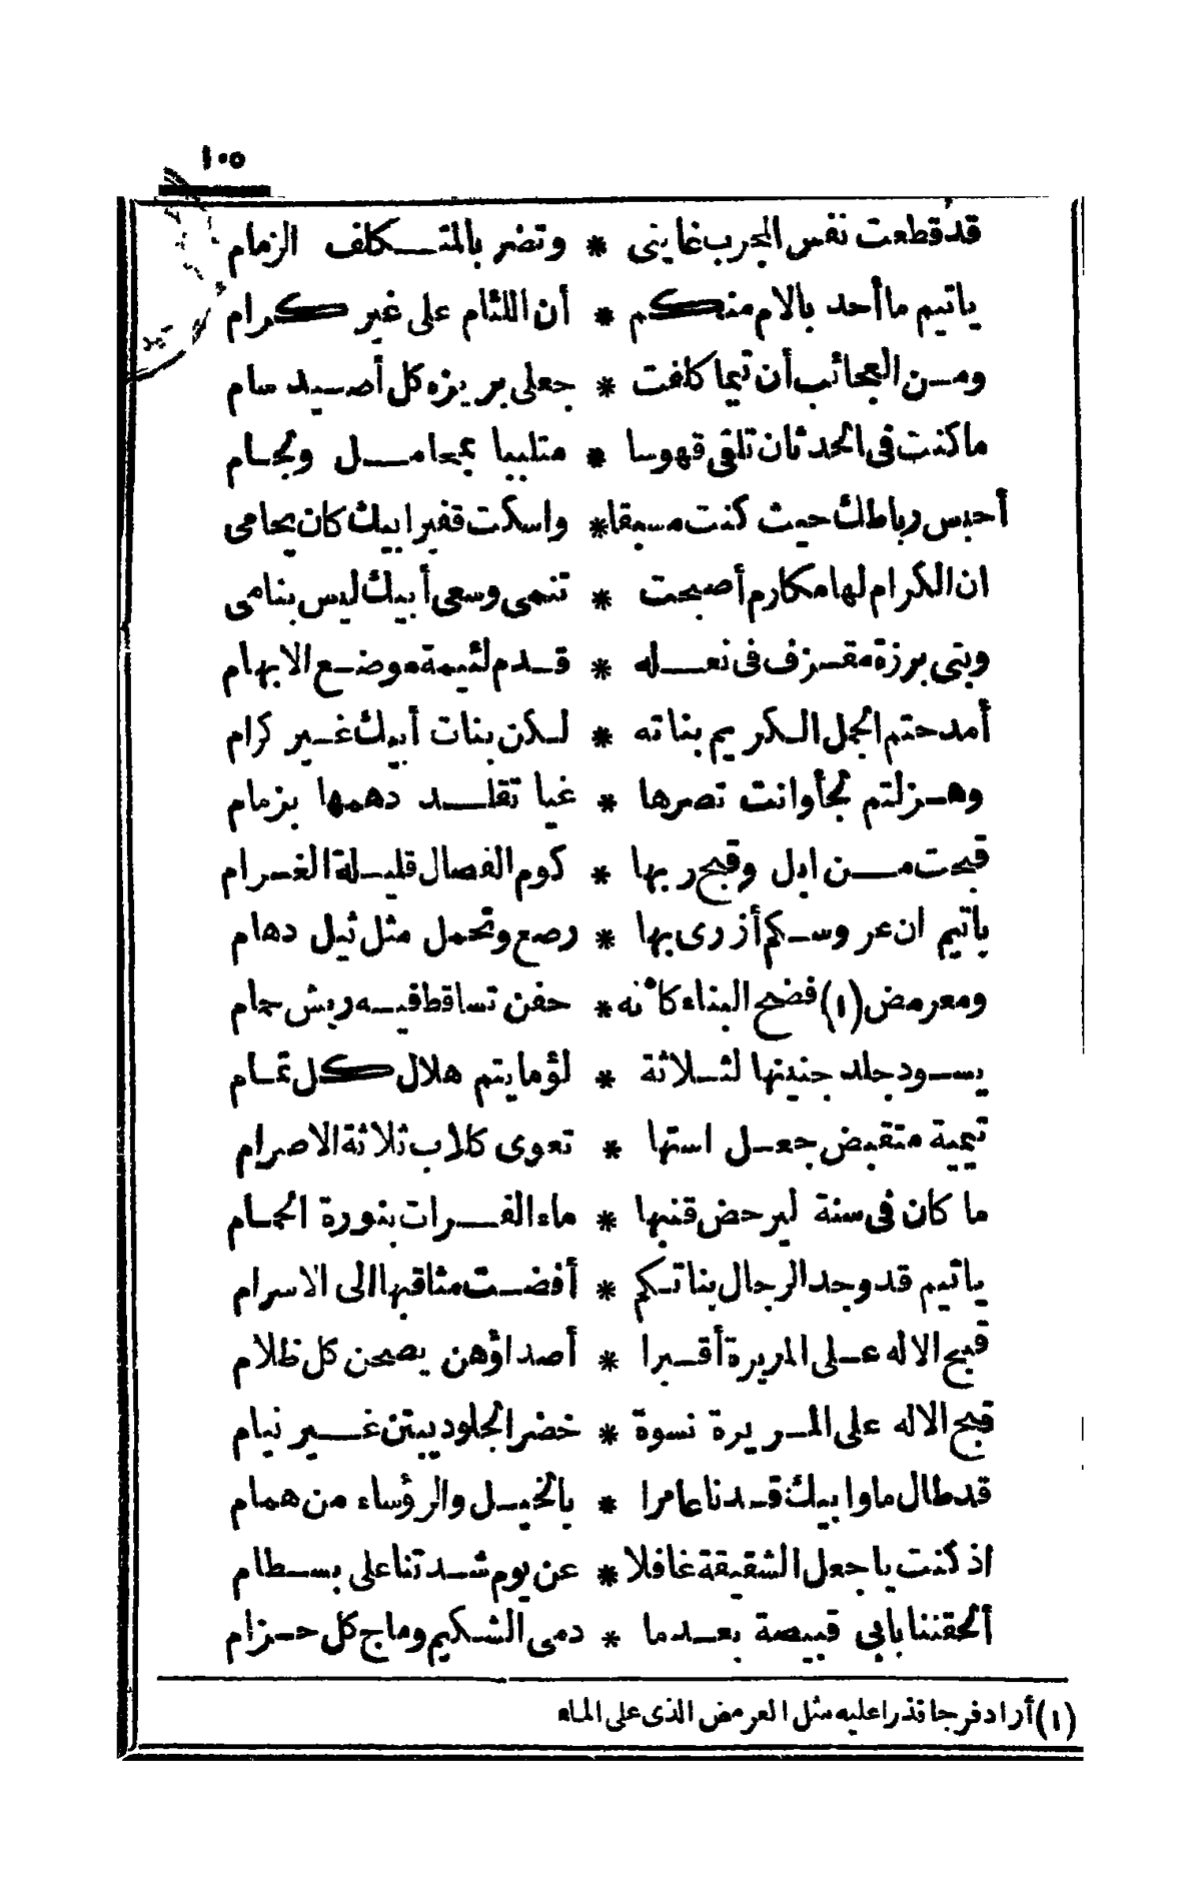 ١٠٥
قد قطعت نفس المجرب غايتى * وتضر بالمتكلف الزمام
ياتيم ما أحد بالام منكم * أن اللئام على غير كرام
ومن العجائب أن تيما كلفت * جعلى بريزه كل أصيد سام
ما كنت فى الحدثان تلقى قهوسا * متلببا بمحامل ولجام
أحبس رباطك حيث كنت مسبقا * واسكت فغير ابيك كان يحامى
ان الكرام لها مكارم أصبحت * تنمى وسعى أبيك ليس بنامى
وبنى برزة مقرف فى نعله * قدم لئيمة موضع الابهام
أمدحتم الجمل الكريم بناته * لكن بنات أبيك غير كرام
وهزلتم لجأ وانت تصرها * غبا تقلد دهمها بزمام
قبحت من ابل وقبح ربها * كوم الفصال قليلة الغرام
ياتيم ان عروسكم أزرى بها * رصع وتحمل مثل ثيل دهام
ومعرمض (١) فضح البناء كأنه * حفن تساقط فيه ريش حمام
يسود جلد جنبتها لثلاثة * لؤما يتم هلال كل تمام
تيمية متقبض جعل استها * تعوى كلاب ثلاثة الاصرام
ما كان فى سنة ليرحض قنبها * ماء الفرات بنورة الحمام
ياتيم قد وجد الرجال بناتكم * أفضت مثاقبها الى الاسرام
قبح الاله على المريرة أقبرا * أصداؤهن يصحن كل ظلام
قبح الاله على المريرة نسوة * خضر الجلود يبتن غير نيام
قد طال ما وابيك قدنا عامرا * بالخيل والرؤساء من همام
اذ كنت يا جعل الشقيقة غافلا * عن يوم شدتنا على بسطام
ألحقننا بابى قبيصة بعدما * دمى الشكيم وماج كل حزام
(١) أراد فرجا قذرا عليه مثل العرمض الذى على الماء